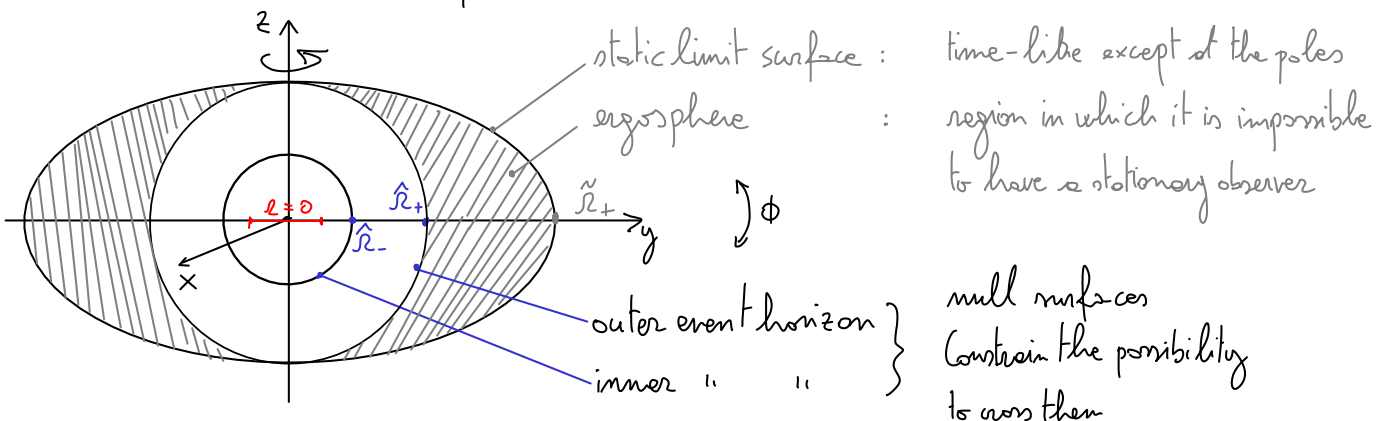 z
static limit surface : time-like except at the poles
ergosphere : region in which it is impossible
to have a stationary observer
r=0
r̂₊
r̃₊
r̂₋
ϕ
y
x
outer event horizon
inner " "
null surfaces
Constrain the possibility
to cross them